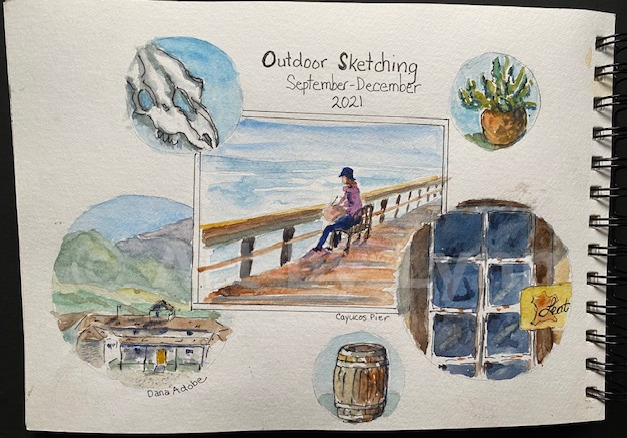 Outdoor Sketching
September-December
2021
Cayucos Pier
Dana Adobe